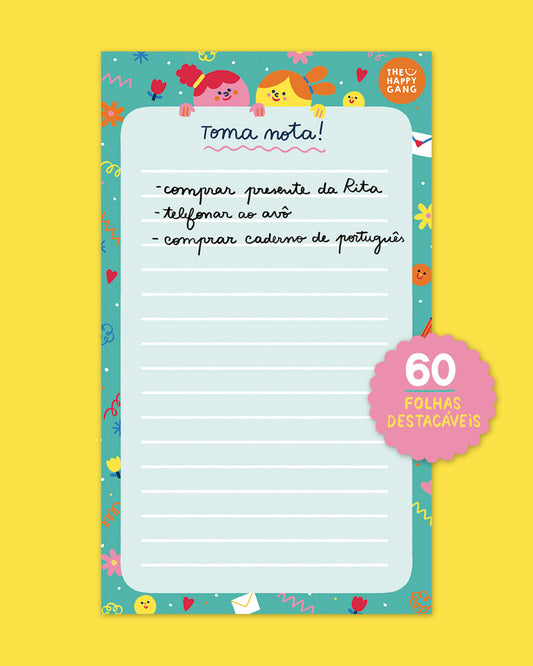 THE
HAPPY
GANG
Toma nota!
- comprar presente da Rita
- telefonar ao avô
- comprar caderno de português
60
FOLHAS
DESTACÁVEIS